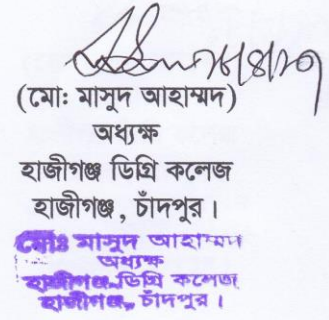 (মোঃ মাসুদ আহাম্মদ)
অধ্যক্ষ
হাজীগঞ্জ ডিগ্রি কলেজ
হাজীগঞ্জ, চাঁদপুর।
মোঃ মাসুদ আহাম্মদ
অধ্যক্ষ
হাজীগঞ্জ ডিগ্রি কলেজ
হাজীগঞ্জ, চাঁদপুর।